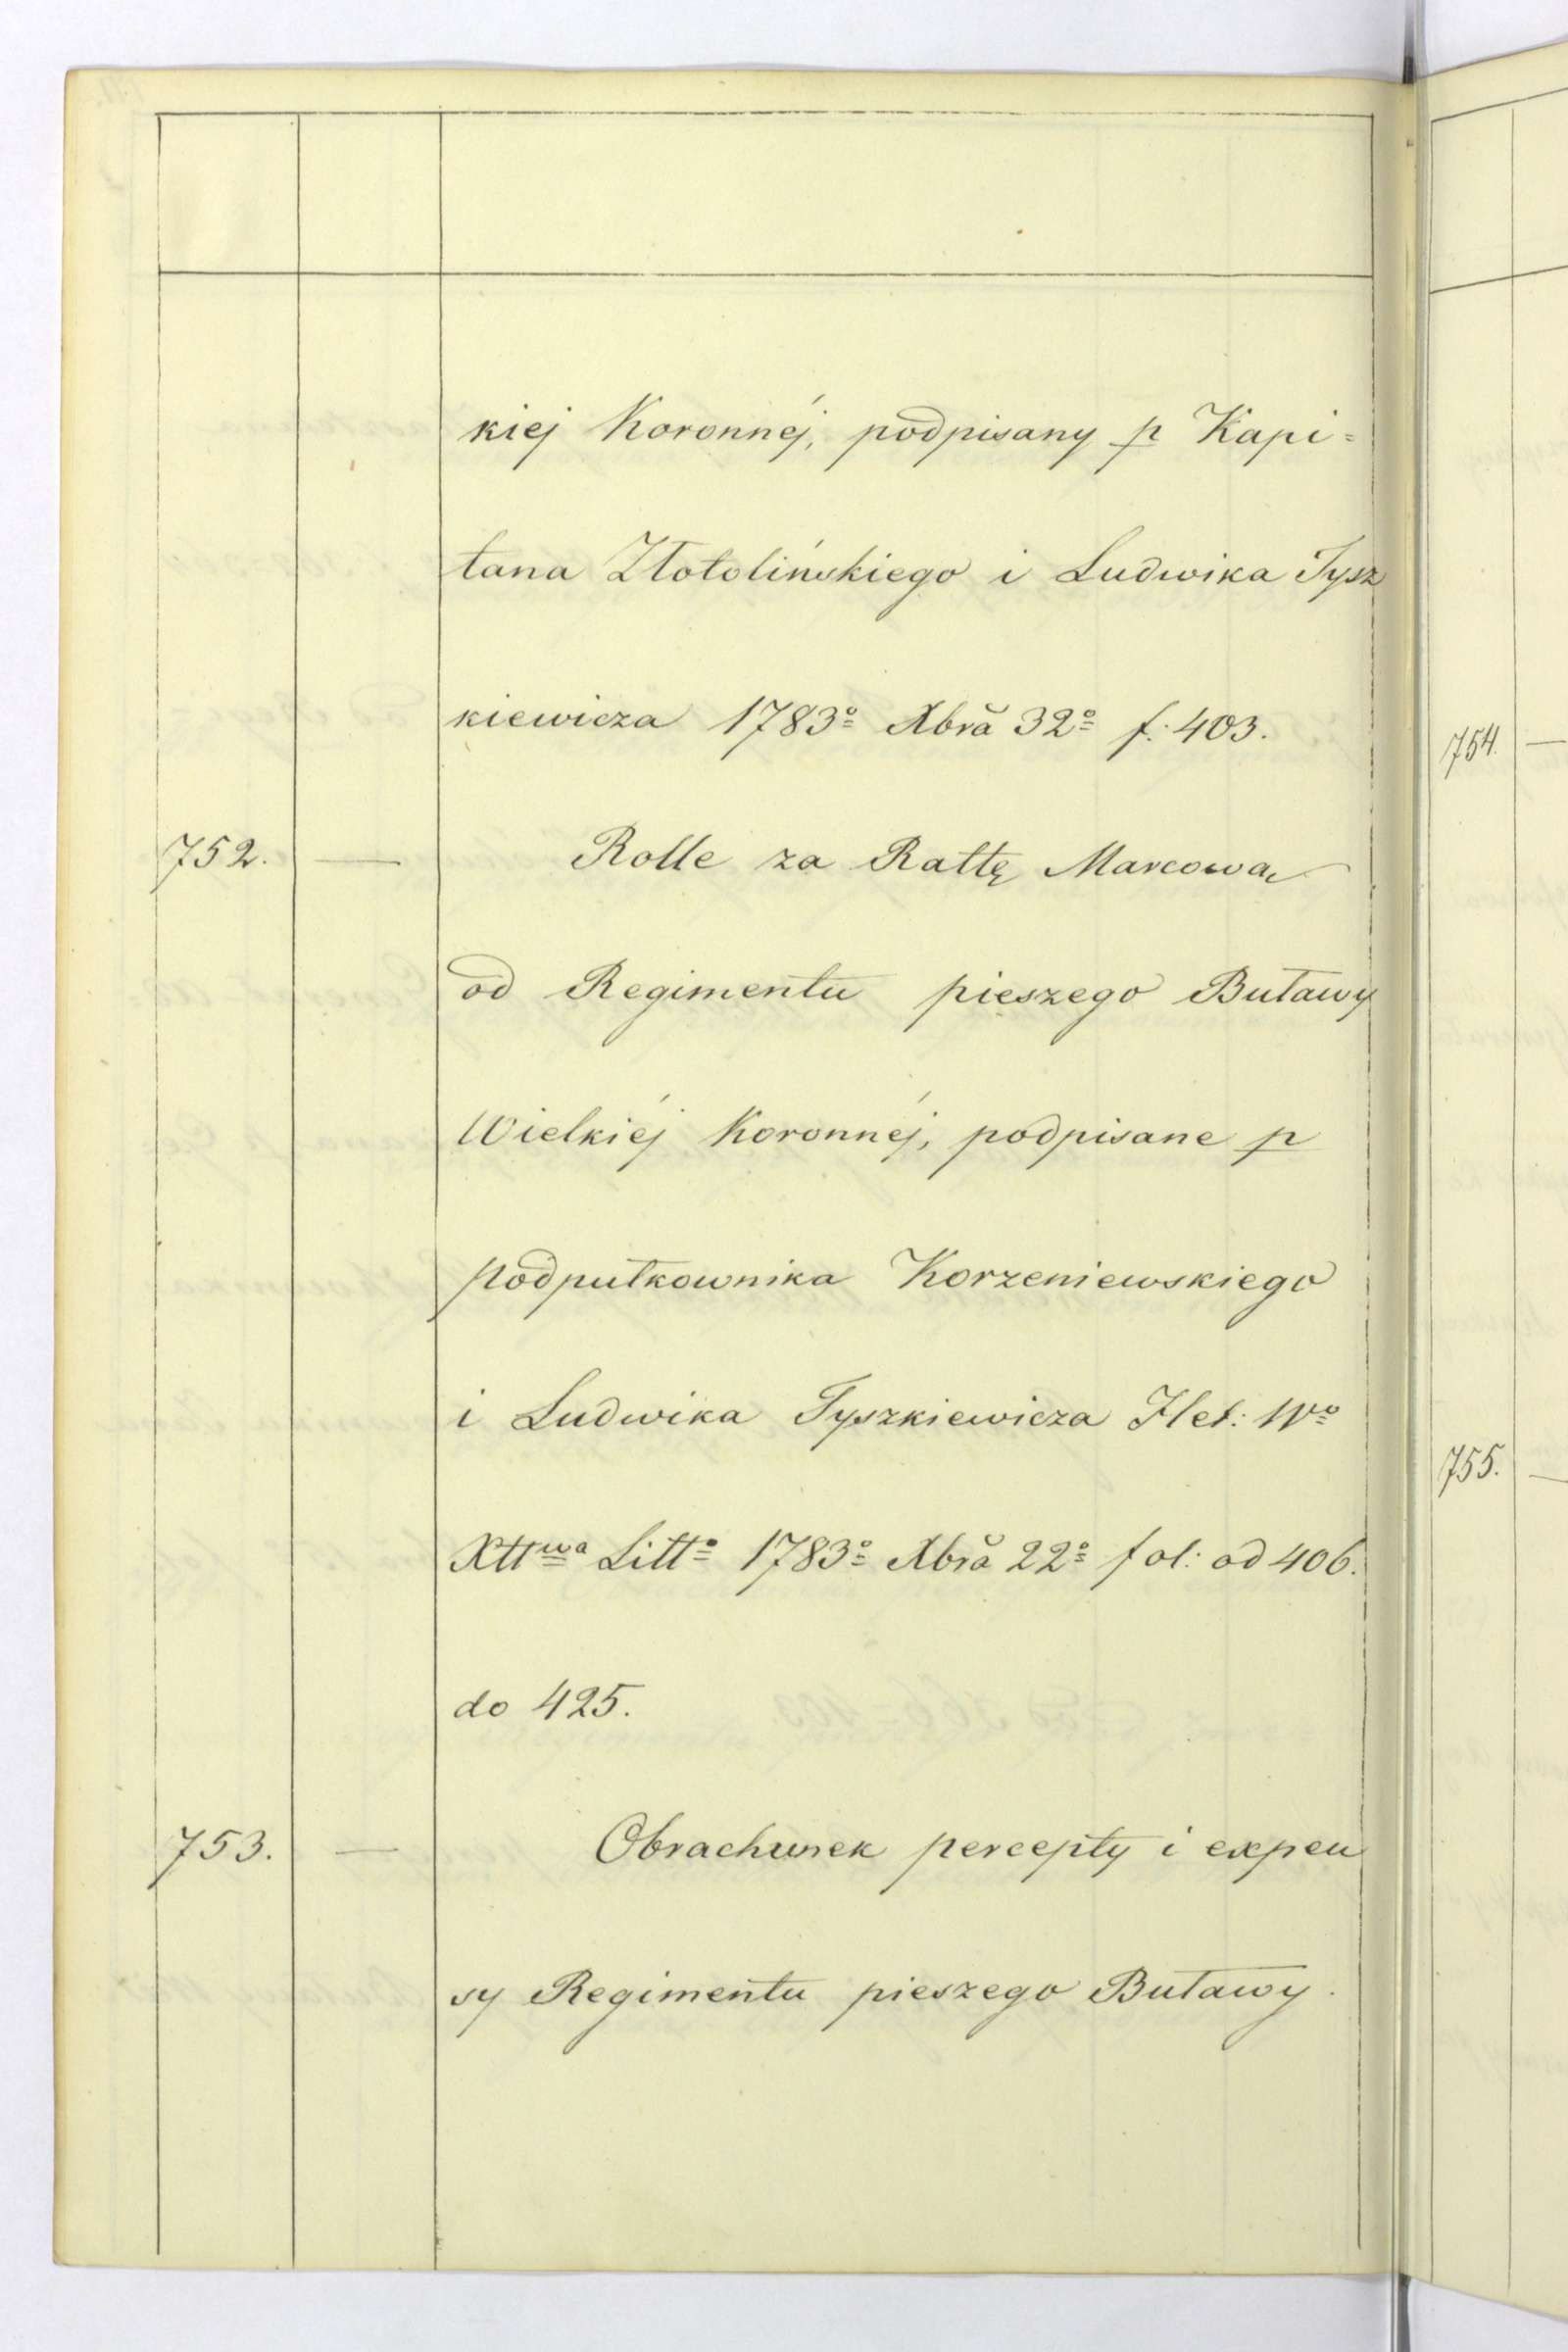 kiej Koronnéj, podpisany p Kapi=
tana Złotolińskiego i Ludwika Tysz
kiewicza 1783º Xbra 32º f: 403.
752. — Rolle za Rattę Marcową
od Regimentu pieszego Buławy
Wielkiéj Koronnéj, podpisane p
podpułkownika Korzeniewskiego
i Ludwika Tyszkiewicza Het: Wº
Xttwa Littº 1783º Xbra 22º fol: od 406.
do 425.
753. — Obrachunek percepty i expen
sy Regimentu pieszego Buławy.
754. —
755. —